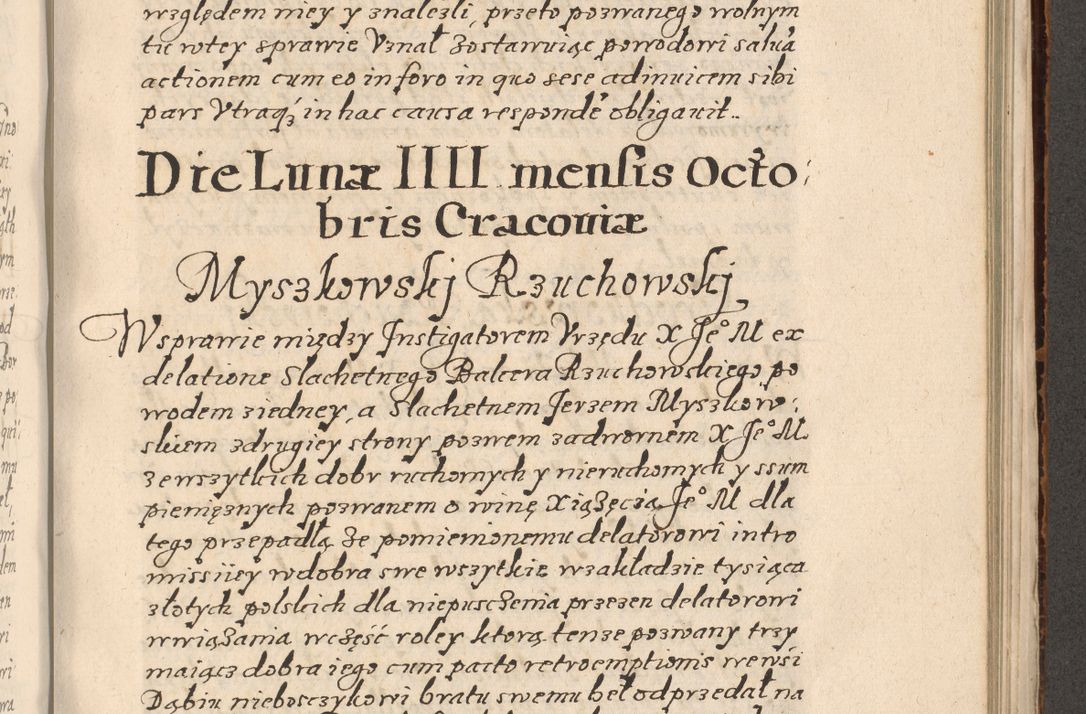 względem niey y znaleźli, przeto pozwanego wolnym
tu wtey sprawie Vznał zostawuiąc powodowi salua
actionem cum eo in foro in quo sese adinuicem sibi
pars Vtraq3 in hac causa responde obligauit..
Die Lunæ IIII mensis Octo
bris Cracouiæ
Myszkowskj Rzuchowskj
W sprawie między Jnstigatorem Vrzędu X Je° M ex
delatione slachetnego Balcera Rzuchowskiego po
wodem ziedney, a slachetnem Jerzem Myszkow:
skiem zdrugiey strony pozwem zadwornem X Je° M
ze wszytkich dobr ruchomych y nieruchomych y ssum
pienięznych pozwanem o winę Xiążęczą Je° M dla
tego przepadłą że pomienionemu delatorowi intro
missiiey w dobra swe wszytkie wzakładzie tysiąca
złotych polskich dla niepusczenia przezen delatorowi
wwiązania wczęść roley ktorą tenze pozwany trzy
maiącz dobra iego cum pacto retroemptionis wewsi
Dąbiu nieboszczykowi bratu swemu beł odprzedał na